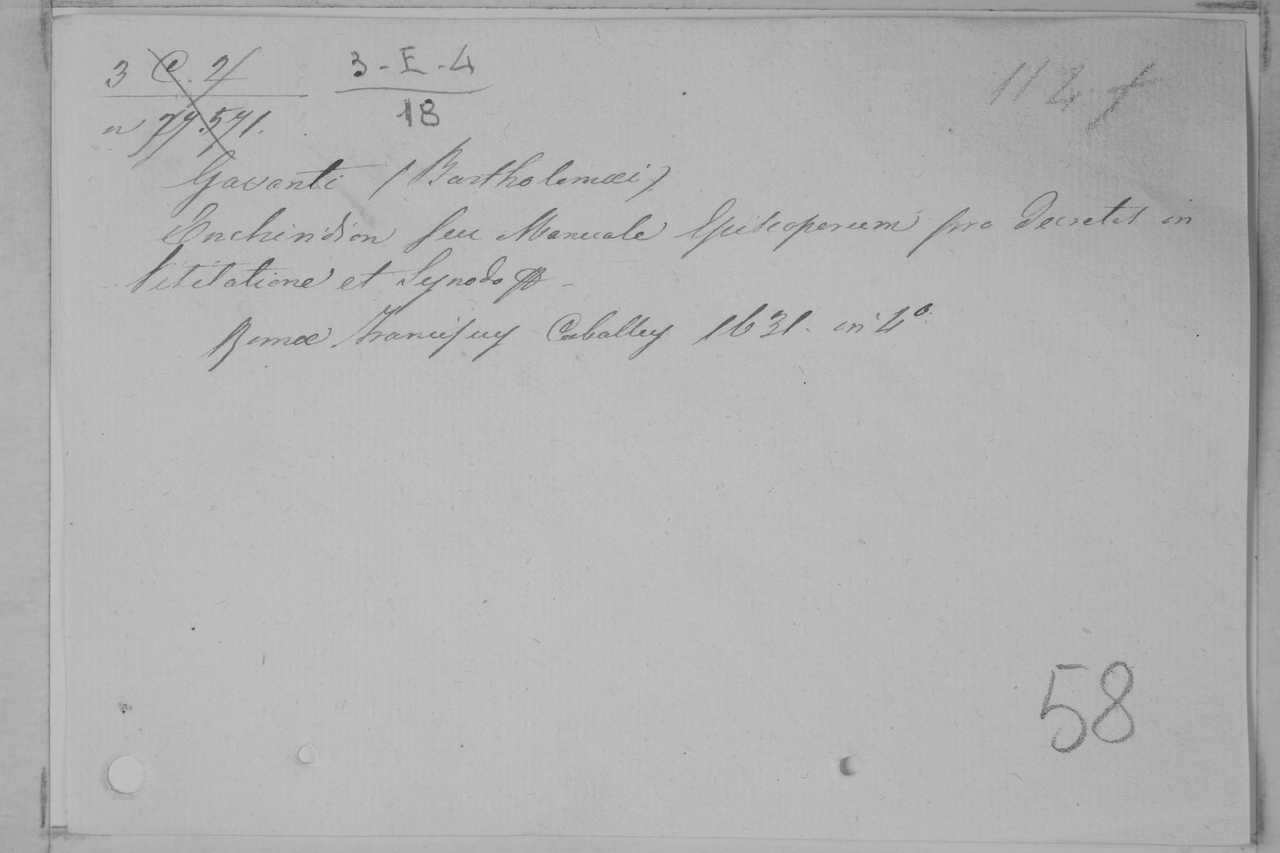 3 C. 2
3-E-4
18
n 77.571.
112.f
Gavanti (Bartholomæi)
Enchiridion seu Manuale Episcoporum pro decretis in
Visitatione et Synodo
Romæ Franciscus Caballus 1631. in 4º.
58